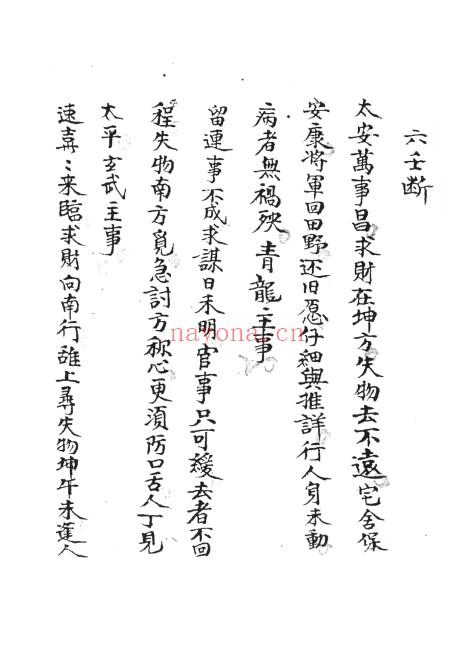 六壬断
太安萬事昌求財在坤方失物去不遠宅舍保
安康將軍回田野还旧愿仔细與推詳行人身未動
病者無禍殃青龍主事
留連事不成求謀日未明官事只可緩去者不回
程失物南方覓急討方称心更須防口舌人丁見
太平玄武主事
速喜〻来臨求財向南行誰上尋失物坤午未逢人
nayona.cn